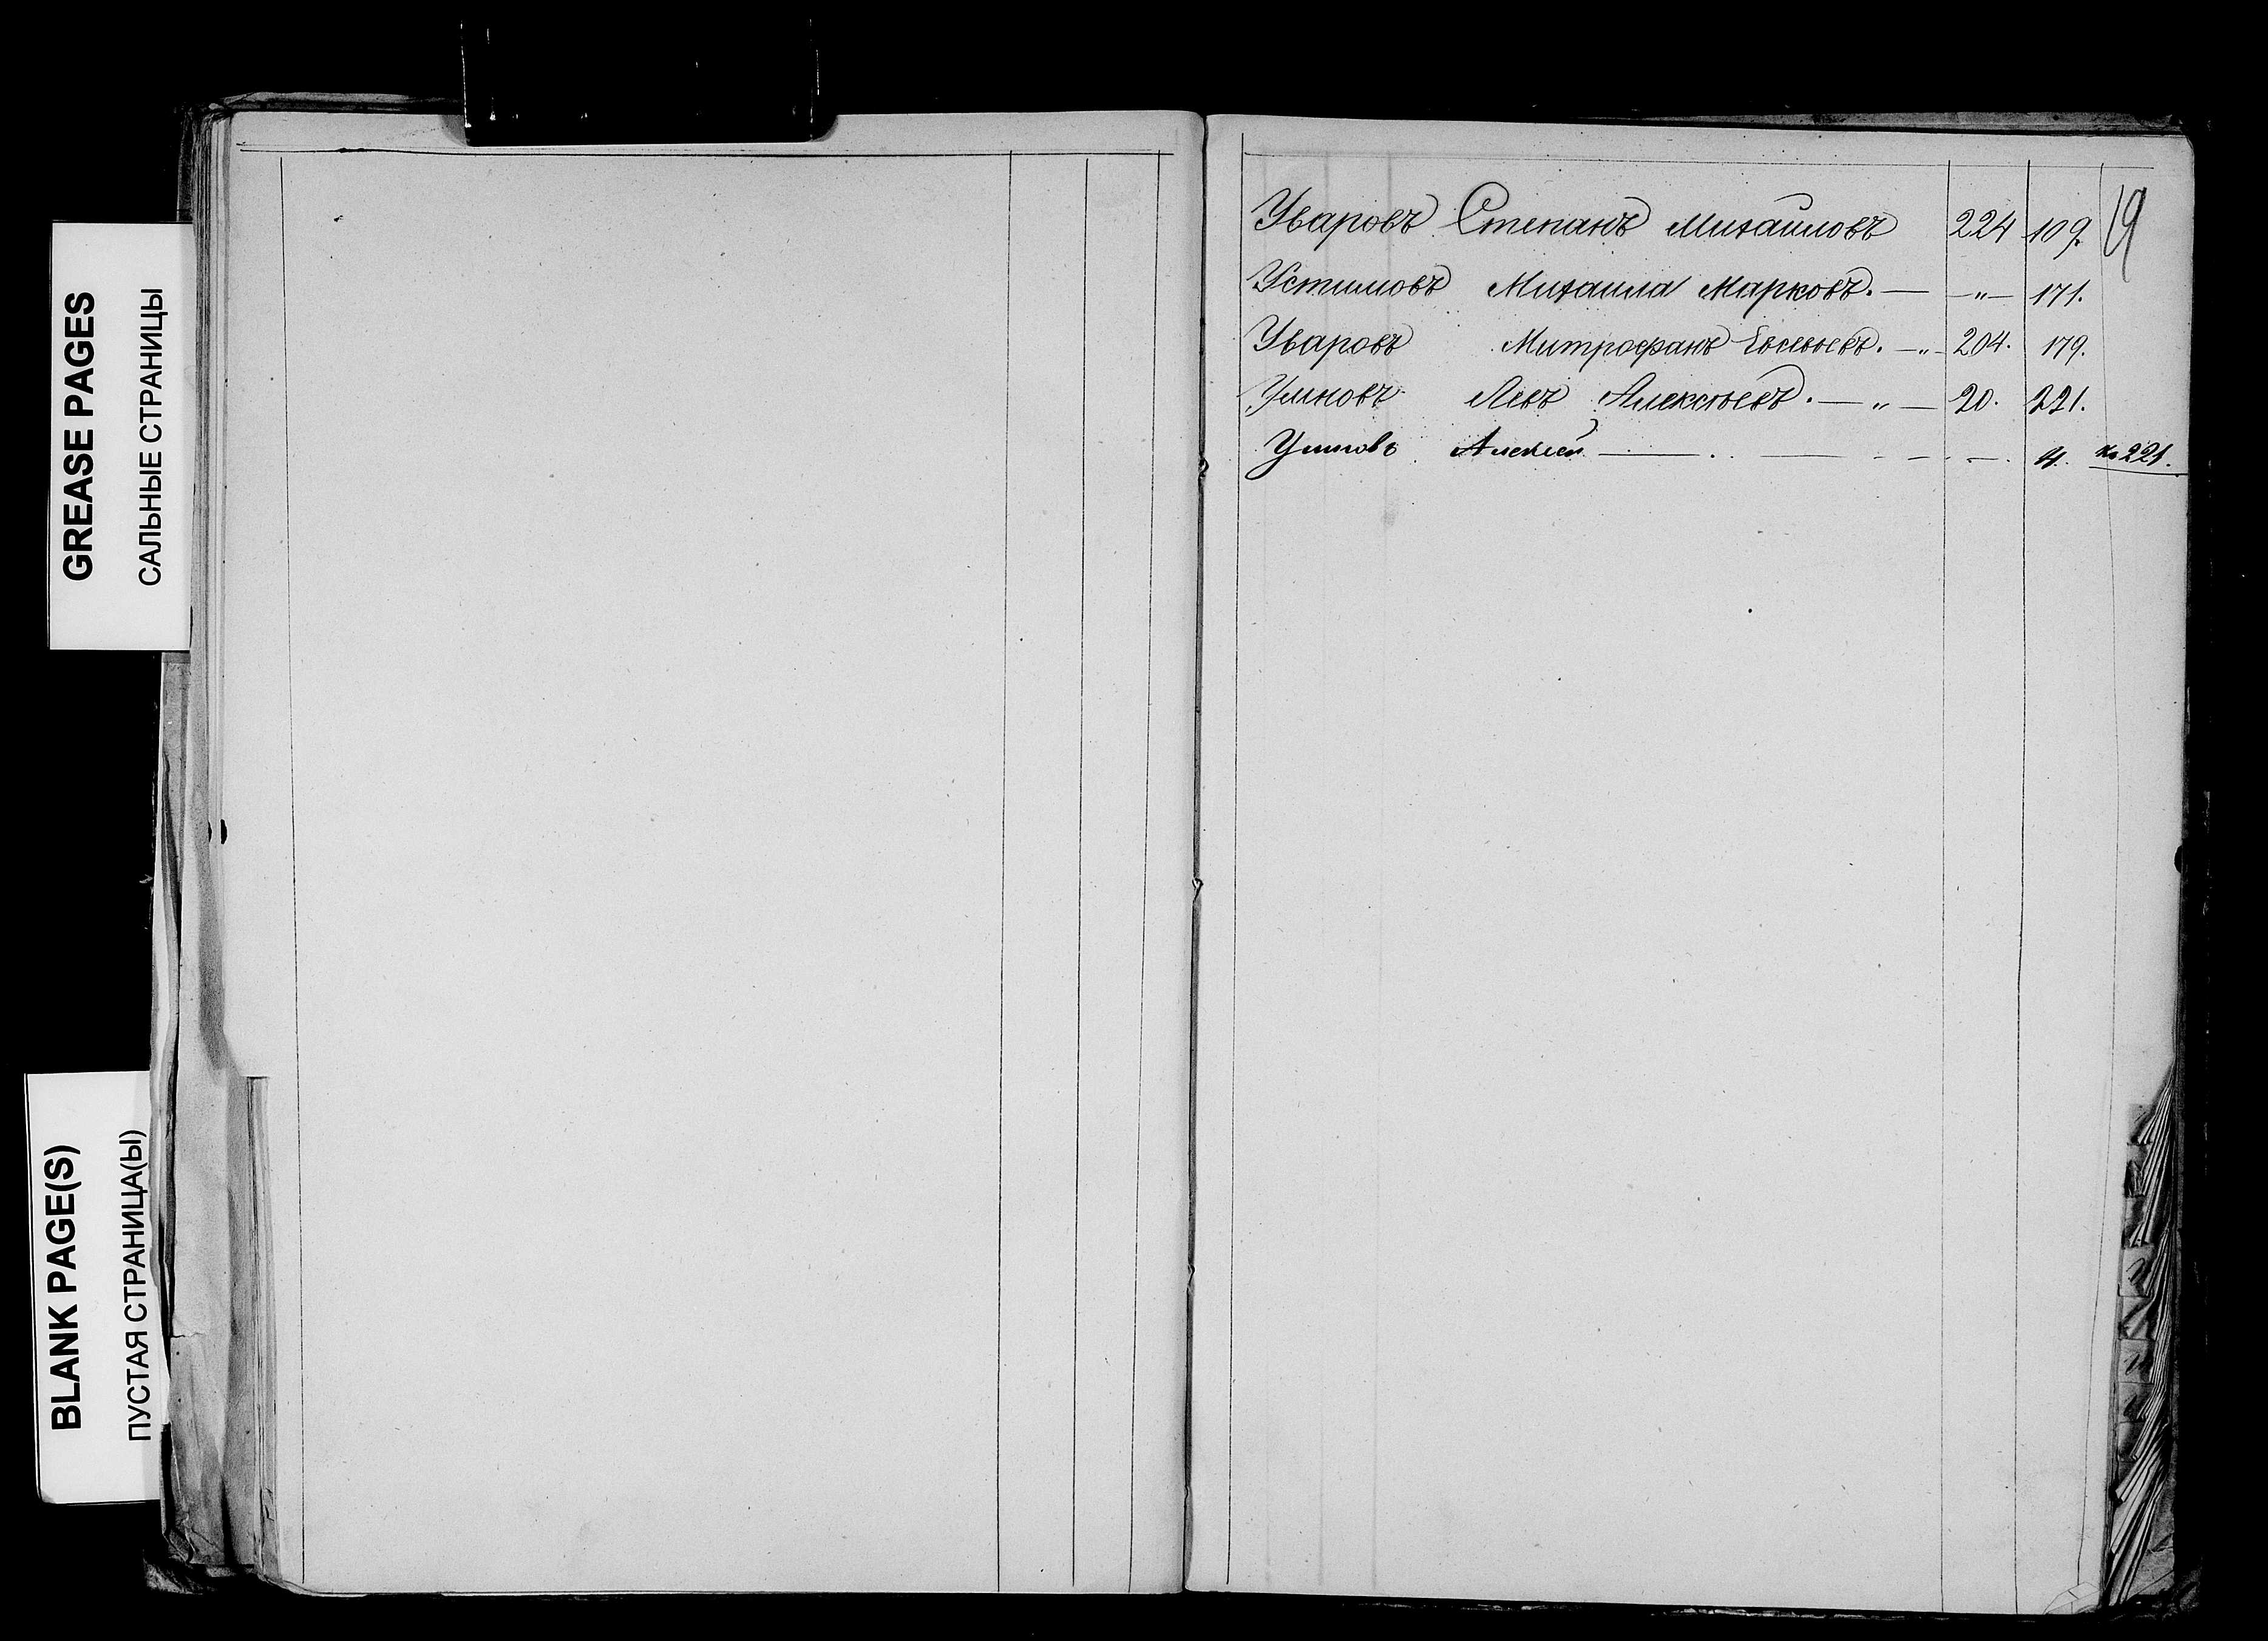 GREASE PAGES
САЛЬНЫЕ СТРАНИЦЫ
BLANK PAGE(S)
ПУСТАЯ СТРАНИЦА(Ы)
19
Уваровъ Степанъ Михайловъ 224 109.
Устимовъ Михаила Марковъ. — — „ — 171.
Уваровъ Митрофанъ Евсевьевъ. — „ — 204. 179.
Умновъ Левъ Алексѣевъ. — „ — 20. 221.
Умновъ Алексей — . — - — - — . 4. 221.